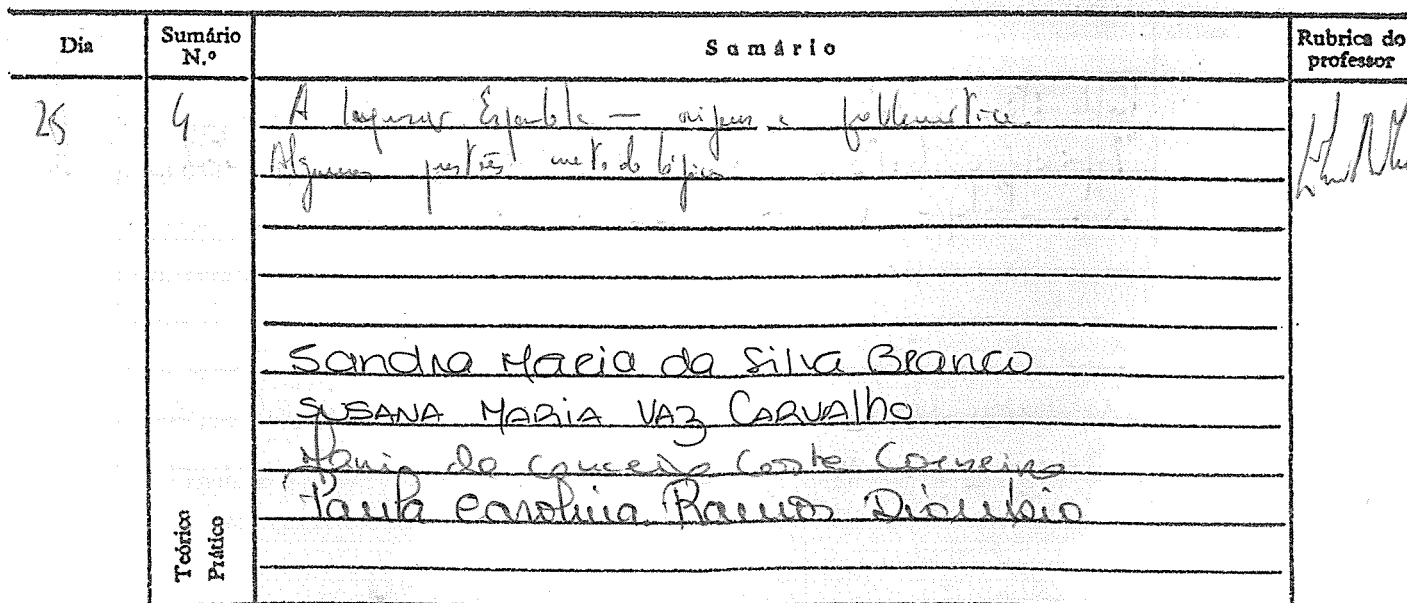 Dia Sumário N.º Sumário Rubrica do professor
25 4 A Espanhola — origens e problemática.
Algumas questões metodológicas
Sandra Maria da Silva Branco
SUSANA MARIA VAZ CARVALHO
Maria da Conceição Costa Carneiro
Paula Carolina Ramos Dionísio
Teórico
Prático